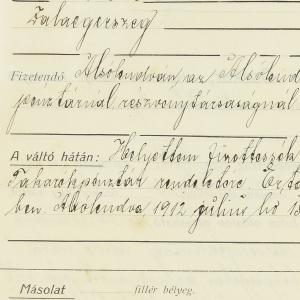 Zalaegerszeg
Fizetendő Alsólendván, az Alsólend
pénztárnál, részvénytársaságnál
A váltó hátán: Helyettem fizettessék
Takarékpénztár rendeletére. Ért
ben. Alsólendva, 1912 július hó 13
Másolat fillér bélyeg.